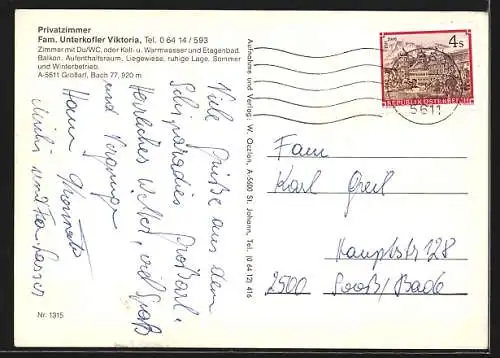 Privatzimmer
Fam. Unterkofler Viktoria, Tel. 0 64 14 / 593
Zimmer mit Du/WC, oder Kalt- u. Warmwasser und Etagenbad.
Balkon. Aufenthaltsraum, Liegewiese, ruhige Lage. Sommer
und Winterbetrieb.
A-5611 Großarl, Bach 77, 920 m
Viele Grüße aus dem
Schiparadies Großarl.
Herrliches Wetter, viel Spaß
und Vergnügen
Hans
Michi und Fam.
Nr. 1315
Aufnahme und Verlag: W. Oczlon, A-5600 St. Johann, Tel. (0 64 12) 416
4 S
REPUBLIK ÖSTERREICH
5611
Fam
Karl Greil
Hauptstr 128
2500 Sooß/Bade